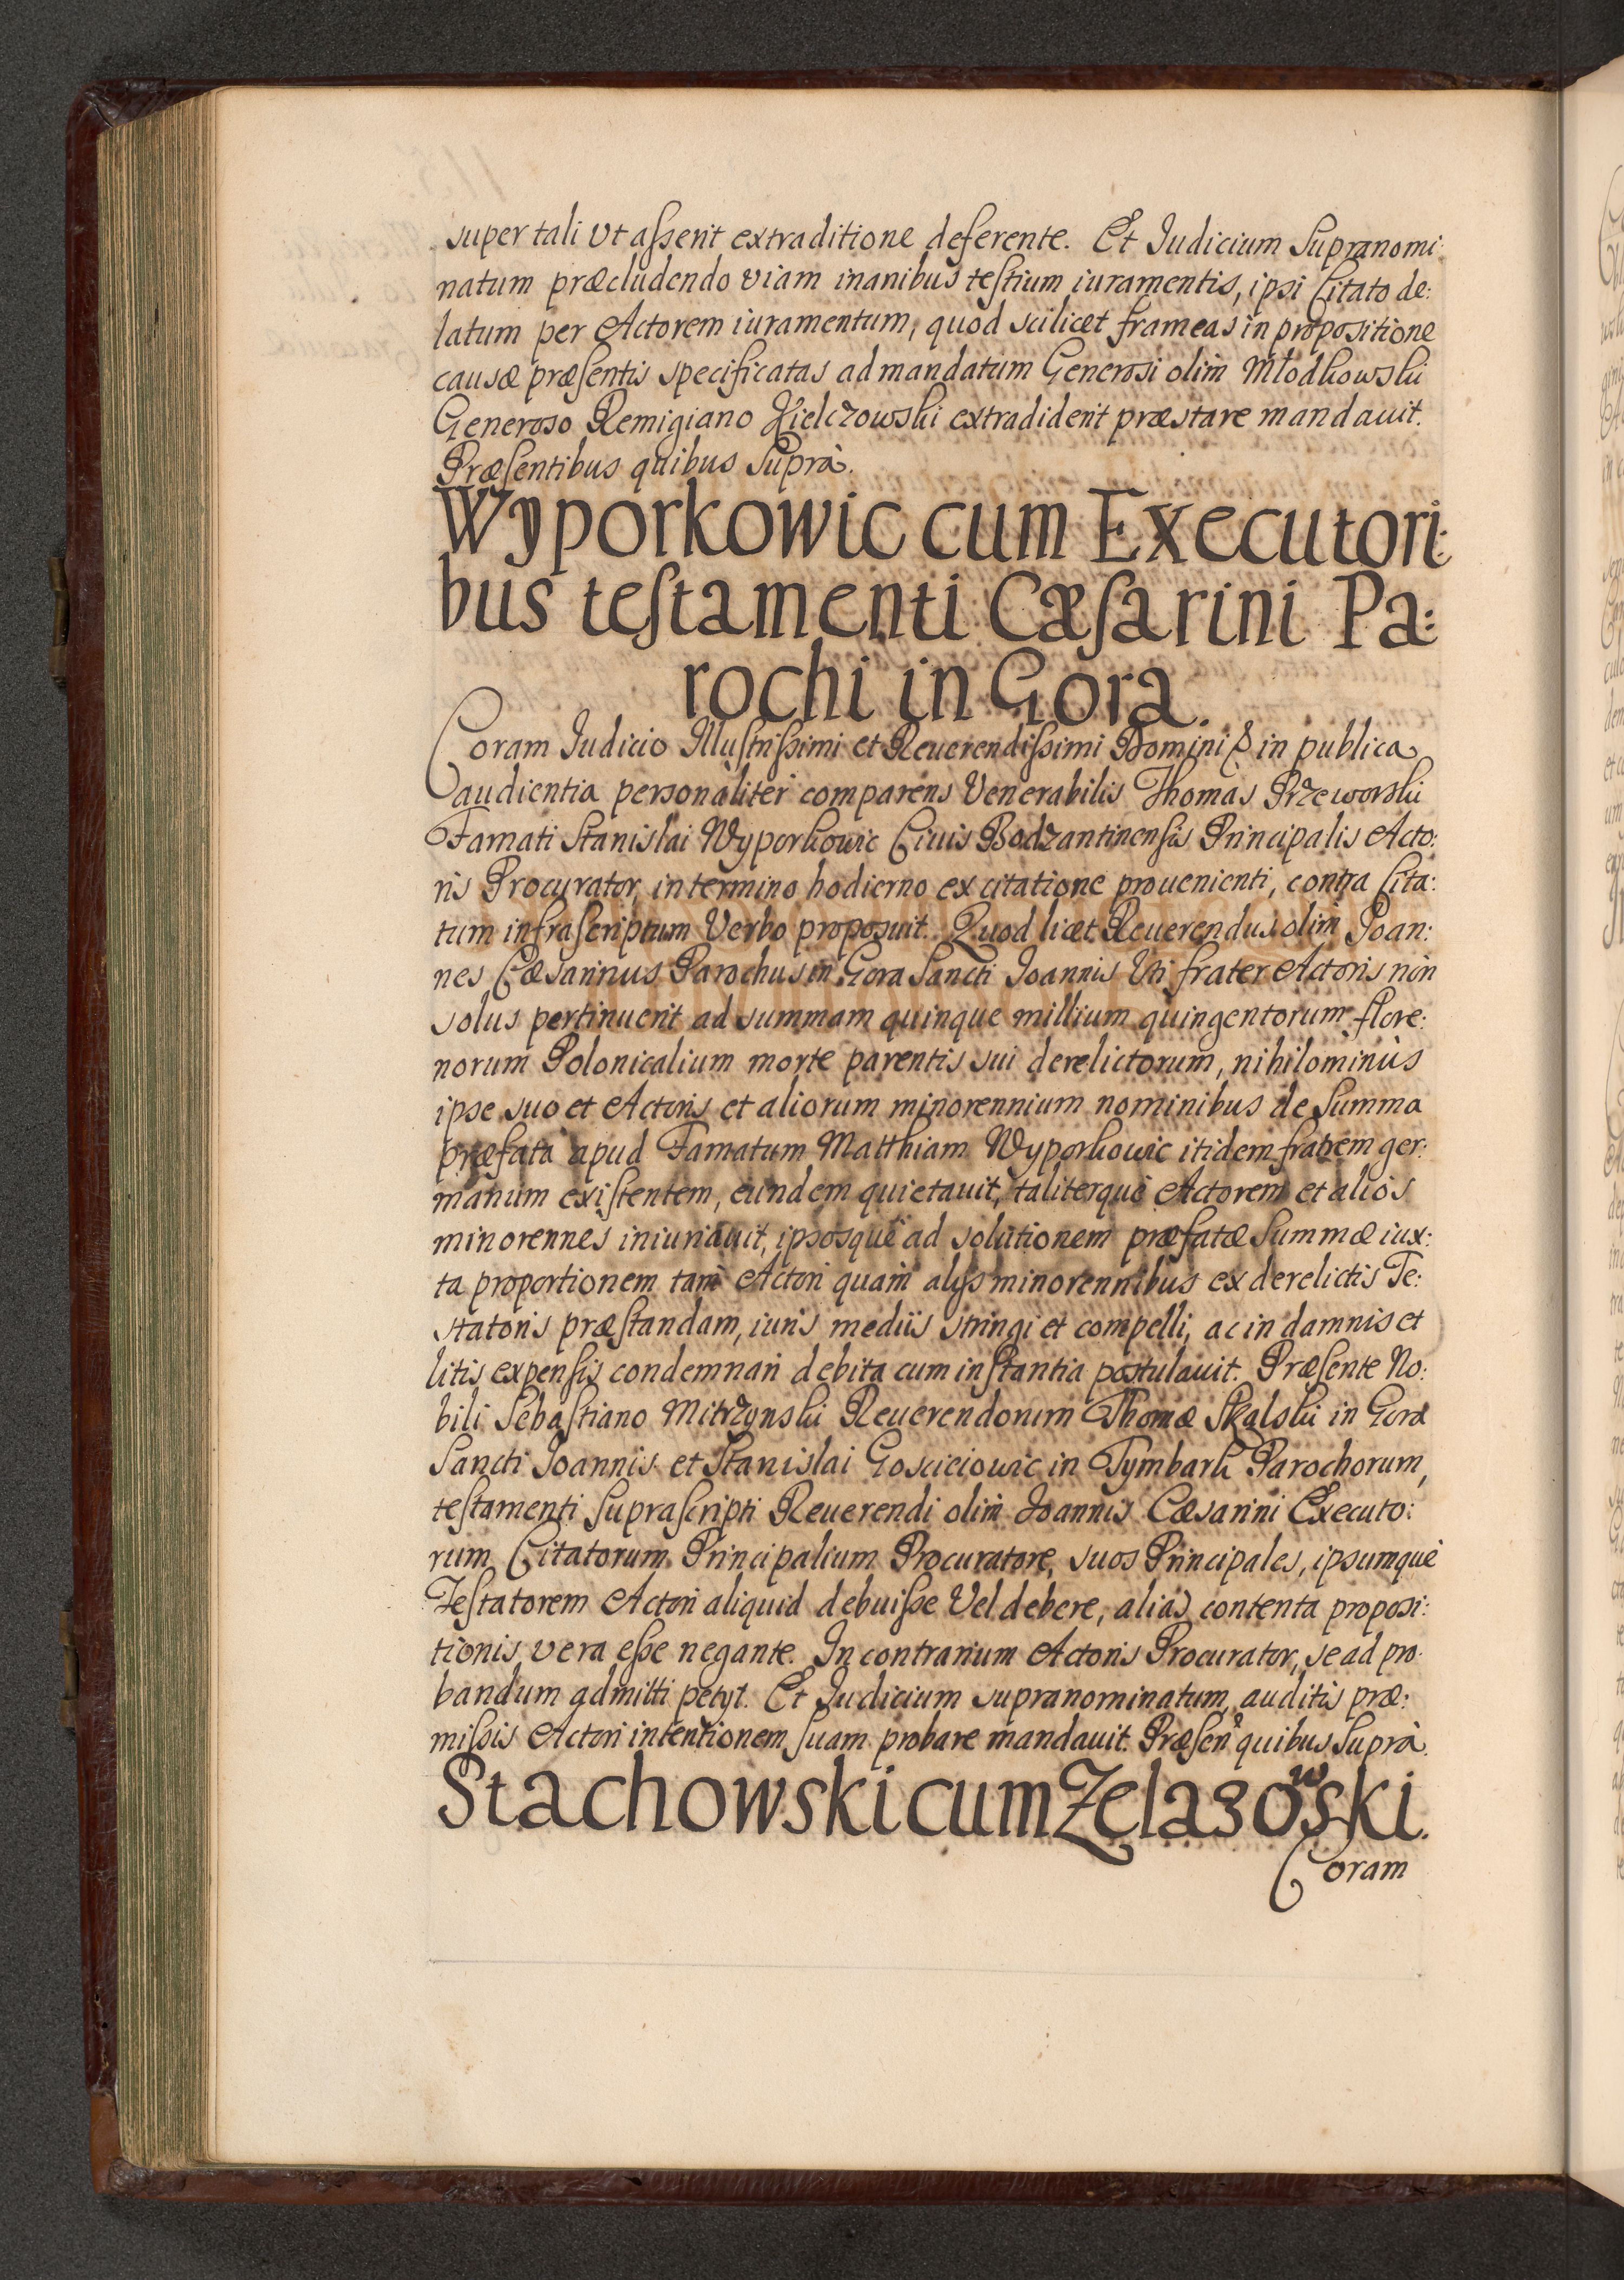 super tali vt aſserit extraditione deferente. Et Judicium Supranomi:
natum præcludendo viam inanibus teſtium iuramentis, ipsi Citato de:
latum per Actorem iuramentum, quod scilicet frameas in propositione
causæ præſentis specificatas ad mandatum Generosi olim Młodkowski
Generoso Remigiano Kielczowski extradiderit præstare mandauit.
Præſentibus quibus Suprà.
Wyporkowic cum Executori:
bus teſtamenti Cæſarini Pa:
rochi in Gora.
Coram Judicio Illuſtriſsimi et Reuerendiſsimi Domini & in publica
audientia personaliter comparens Venerabilis Thomas Przeworski
Famati Stanislai Wyporkowic Ciuis Bodzantinenſis Principalis Acto:
ris Procurator, in termino hodierno ex citatione prouenienti, contra Cita:
tum infraſcriptum Verbo proposuit. Quod licet Reuerendus olim Joan:
nes Cæsarinus Parochus in Gora Sancti Joannis Vti frater Actoris non
solus pertinuerit ad summam quinque millium quingentorum flore:
norum Polonicalium morte parentis sui derelictorum, nihilominùs
ipse suo et Actoris et aliorum minorennium nominibus de Summa
præfata apud Famatum Matthiam Wyporkowic itidem fratrem ger:
manum exiſtentem, eundem quietauit, taliterquè Actorem et alios
minorennes iniuriauit, ipsosquè ad solutionem præfatæ Summæ iux:
ta proportionem tam Actori quam alijs minorennibus ex derelictis Te:
statoris præſtandam, iuris mediis stringi et compelli, ac in damnis et
litis expenſis condemnari debita cum inſtantia postulauit. Præſente No:
bili Sebaſtiano Mitrzynski Reuerendorum Thomæ Skalski in Gora
Sancti Joannis et Stanislai Gosciciowic in Tymbark Parochorum,
teſtamenti Supraſcripti Reuerendi olim Joannis Cæsarini Executo:
rum Citatorum Principalium Procuratore, suos Principales, ipsumquè
Teſtatorem Actori aliquid debuiſse Vel debere, aliàs contenta proposi:
tionis vera eſse negante. In contrarium Actoris Procurator, se ad pro:
bandum admitti petyt. Et Judicium supranominatum, auditis præ:
miſsis Actori intentionem suam probare mandauit. Præſen quibus Suprà.
Stachowski cum Zelazowski.
Coram